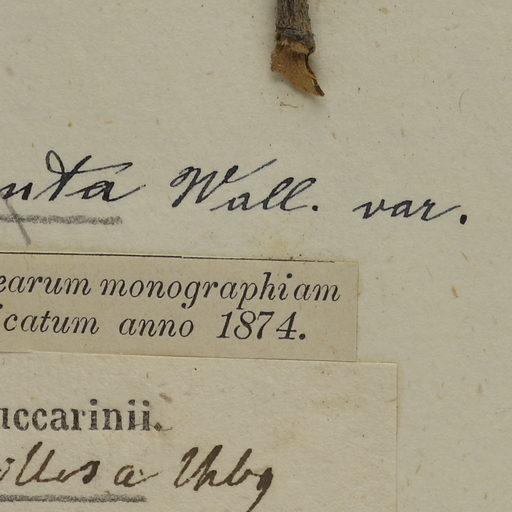 nta Wall. var.
earum monographiam
icatum anno 1874.
uccarinii.
illosa Thbg